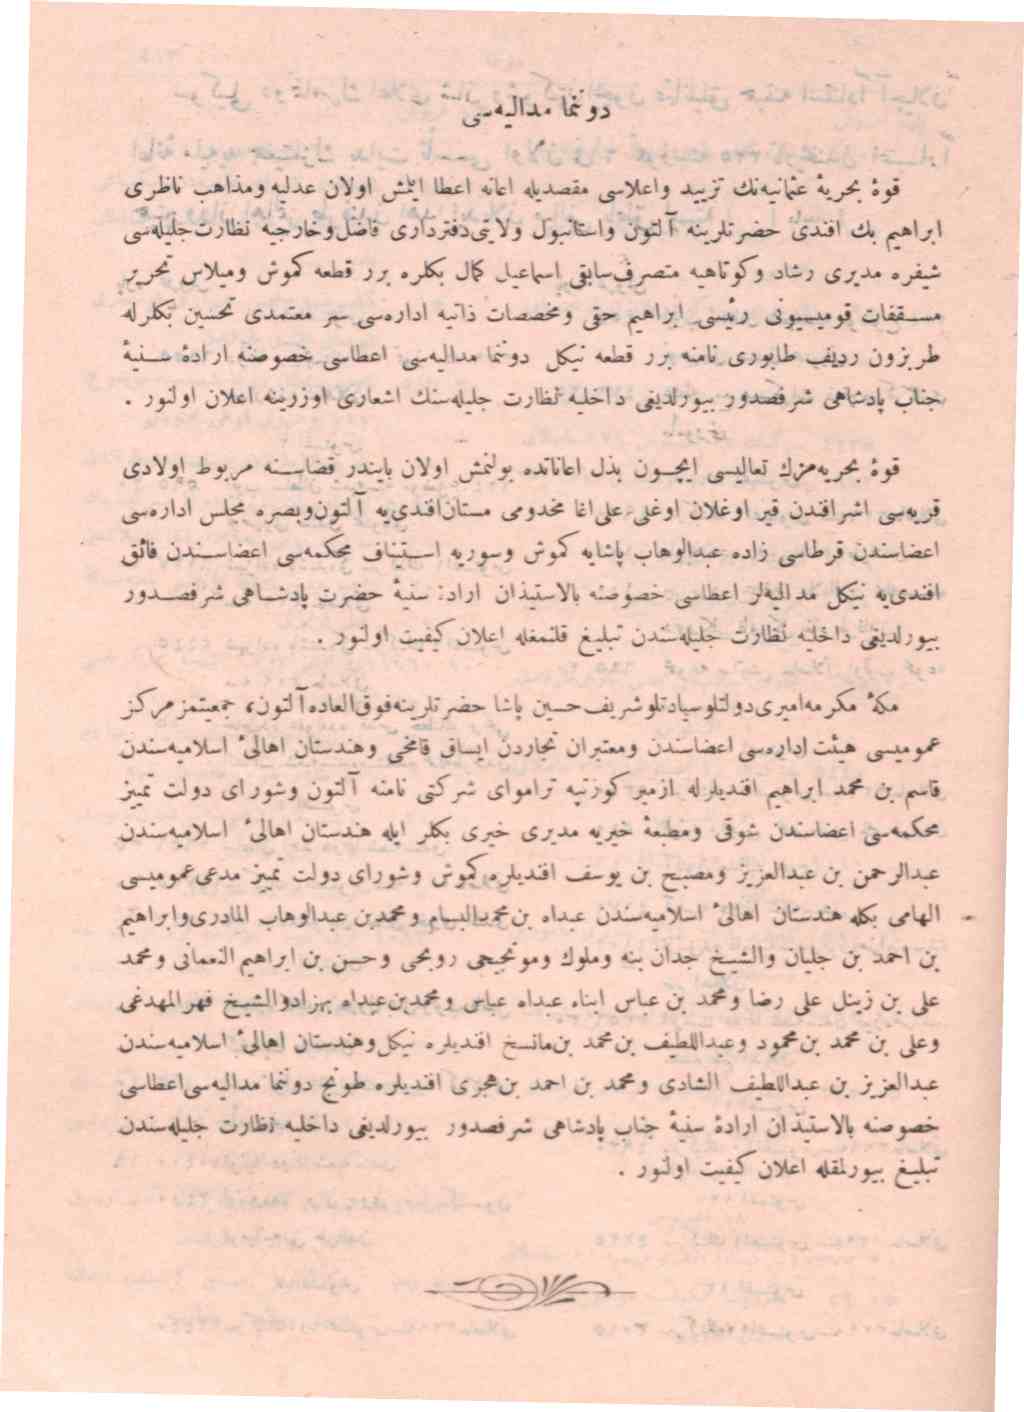 دوننما مداليه‌سی
قوۀ بحريۀ عثمانيه‌نك تزييد واعلاسی مقصديله اعانه اعطا ايلمش اولان عدليه ومذاهب ناظری
ابراهيم بك افندی حضرتلرينه آلتون واستانبول ولايتی دفترداری فاضل وخارجيه نظارت جليله‌سی
شيفره مديری رشاد وكوتاهيه متصرف سابقی اسماعيل كمال بكلره برر قطعه كموش وميلاس تحرير
مسقفات قوميسيونی رئيسی ابراهيم حقی ومخصصات ذاتيه اداره‌سی سر معتمدی تحسين بكلرله
طربزون رديف طابوری نامنه برر قطعه نيكل دوننما مداليه‌سی اعطاسی خصوصنه ارادۀ سنيۀ
جناب پادشاهی شرفصدور بيورلديغی داخليه نظارت جليله‌سنك اشعاری اوزرينه اعلان اولنور .
قوۀ بحريه‌مزك تعاليسی ايچون بذل اعاناتده بولنمش اولان بايندر قضاسنه مربوط اولادی
قريه‌سی اشرافندن قير اوغلان اوغلی علی اغا مخدومی مستان افندی‌يه آلتون وبصره مجلس اداره‌سی
اعضاسندن قرطاسی زاده عبدالوهاب پاشايه كموش وسوريه استيناف محكمه‌سی اعضاسندن فائق
افندی‌يه نيكل مداليه‌لر اعطاسی خصوصنه بالاستيذان ارادۀ سنيۀ حضرت پادشاهی شرفصدور
بيورلديغی داخليه نظارت جليله‌سندن تبليغ قلنمغله اعلان كيفيت اولنور .
مكۀ مكرمه اميری دولتلو سيادتلو شريف حسين پاشا حضرتلرينه فوق‌العاده آلتون، جمعيتمز مركز
عموميسی هيئت اداره‌سی اعضاسندن ومعتبران تجاردن ايساق قامخی وهندستان اهالئ اسلاميه‌سندن
قاسم بن محمد ابراهيم افنديلرله ازمير كوزتپه تراموای شركتی نامنه آلتون وشورای دولت تمييز
محكمه‌سی اعضاسندن شوقی ومطبعۀ خيريه مديری خيری بكلر ايله هندستان اهالئ اسلاميه‌سندن
عبدالرحمن بن عبدالعزيز ومصبح بن يوسف افنديلره كموش وشورای دولت تمييز مدعی عموميسی
الهامی بكله هندستان اهالئ اسلاميه‌سندن عبداه بن محمد البسام ومحمد بن عبدالوهاب المادری وابراهيم
بن احمد بن جليان والشيخ جدان بنه وملوك ومونجيجی روبحی وحسن بن ابراهيم النعمانی ومحمد
علی بن زينل علی رضا ومحمد بن عباس ابناء عبداه عباس ومحمد بن عبداه بهزاد والشيخ فهر المهدغی
وعلی بن محمد بن محمود وعبداللطيف بن محمد بن مانسخ افنديلره نيكل وهندستان اهالئ اسلاميه‌سندن
عبدالعزيز بن عبداللطيف الشادی ومحمد بن احمد بن هجری افنديلره طونج دوننما مداليه‌سی اعطاسی
خصوصنه بالاستيذان ارادۀ سنيۀ جناب پادشاهی شرفصدور بيورلديغی داخليه نظارت جليله‌سندن
تبليغ بيورلمقله اعلان كيفيت اولنور .